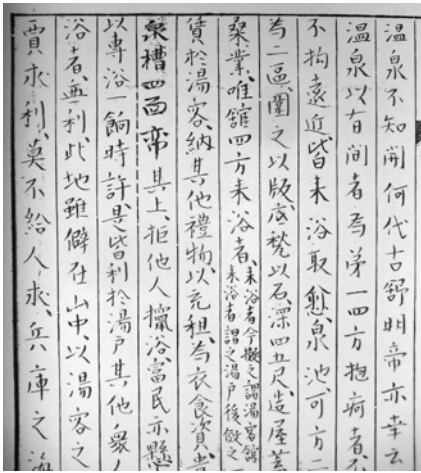 温泉不知開何代古舒明帝亦幸云
温泉以有间者為第一四方抱病者不
不拘遠近皆来浴取愈泉池可方二
為二區圍之以版底甃以石深四五尺造屋蓋
桑業唯舘四方来浴者来浴者今擬之謂湯客舘
来浴者謂之湯戸後倣之
賃於湯客納其他禮物以充租為衣食資
泉槽四面帘其上拒他人擅浴富民亦懸
以專浴一餉時許是皆利於湯戸其他衆人
浴者更利此地雖僻在山中以湯客之
賈求利莫不給人求兵庫之海